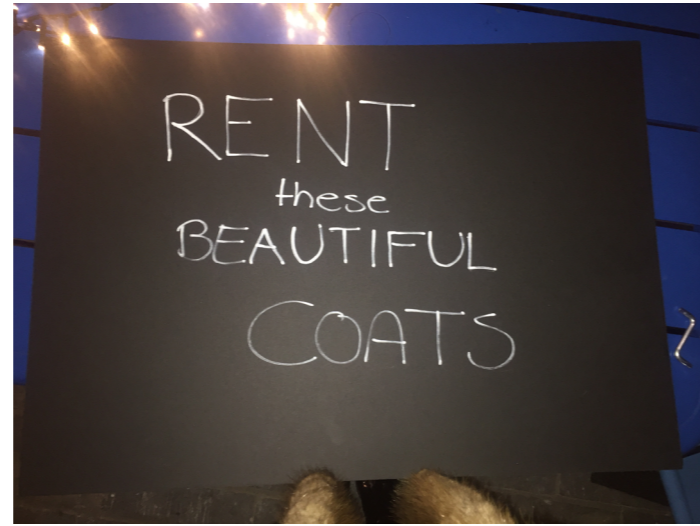 RENT
these
BEAUTIFUL
COATS